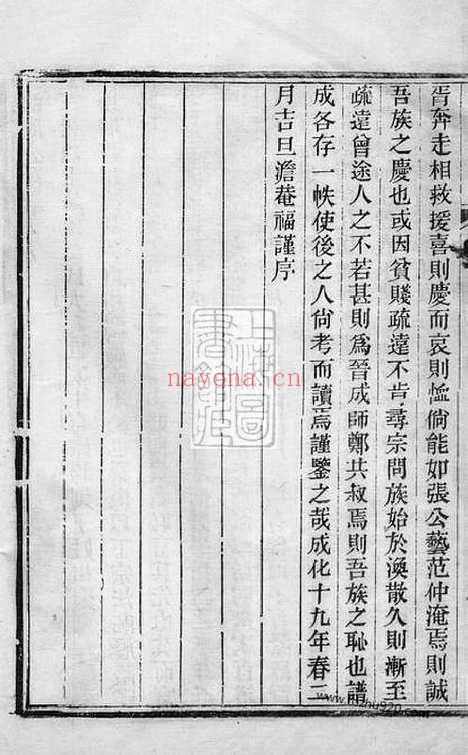 胥奔走相救援喜則慶而哀則恤倘能如張公藝范仲淹焉則誠
吾族之慶也或因貧賤疏遠不肯尋宗問族始於渙散久則漸至
疏遠曾途人之不若甚則爲晉成師鄭共叔焉則吾族之恥也譜
成各存一帙使後之人尙考而讀焉謹鑒之哉成化十九年春二
月吉旦澹菴福謹序
nayona.cn